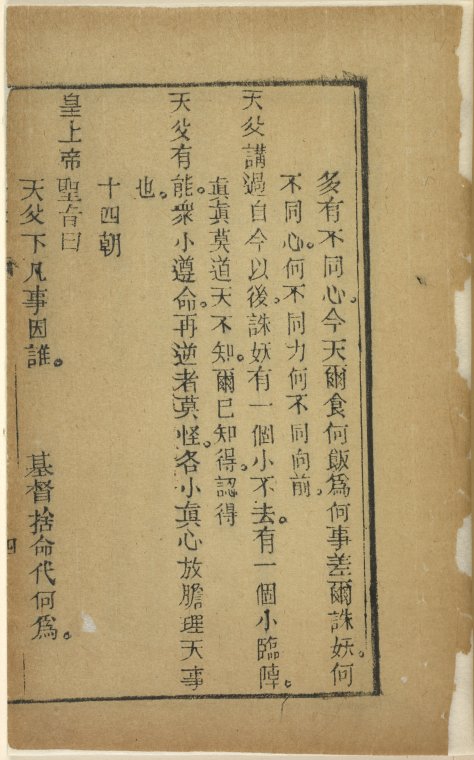 多有不同心。今天爾食何飯爲何事差爾誅妖。何
不同心。何不同力何不同向前。
天父講過自今以後。誅妖有一個小不去。有一個小臨陣。
眞眞莫道天不知。爾已知得。認得
天父有能。衆小遵命。再逆者莫怪。各小眞心放膽理天事
也。
十四朝
皇上帝聖旨曰
天父下凡事因誰。基督捨命代何爲。
四